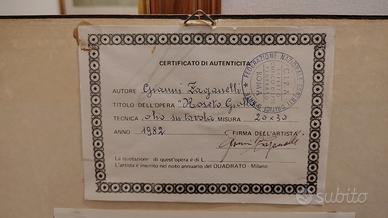 CERTIFICATO DI AUTENTICITÀ
AUTORE Gianni Zaganelli
TITOLO DELL'OPERA "Roseto Giallo"
TECNICA olio su tavola MISURA 20x30
ANNO 1982 FIRMA DELL'ARTISTA
Gianni Zaganelli
La quotazione di quest'opera è di L.
L'artista è inserito nel noto annuario del QUADRATO - Milano
FEDERAZIONE NAZIONALE
ROMA
subito